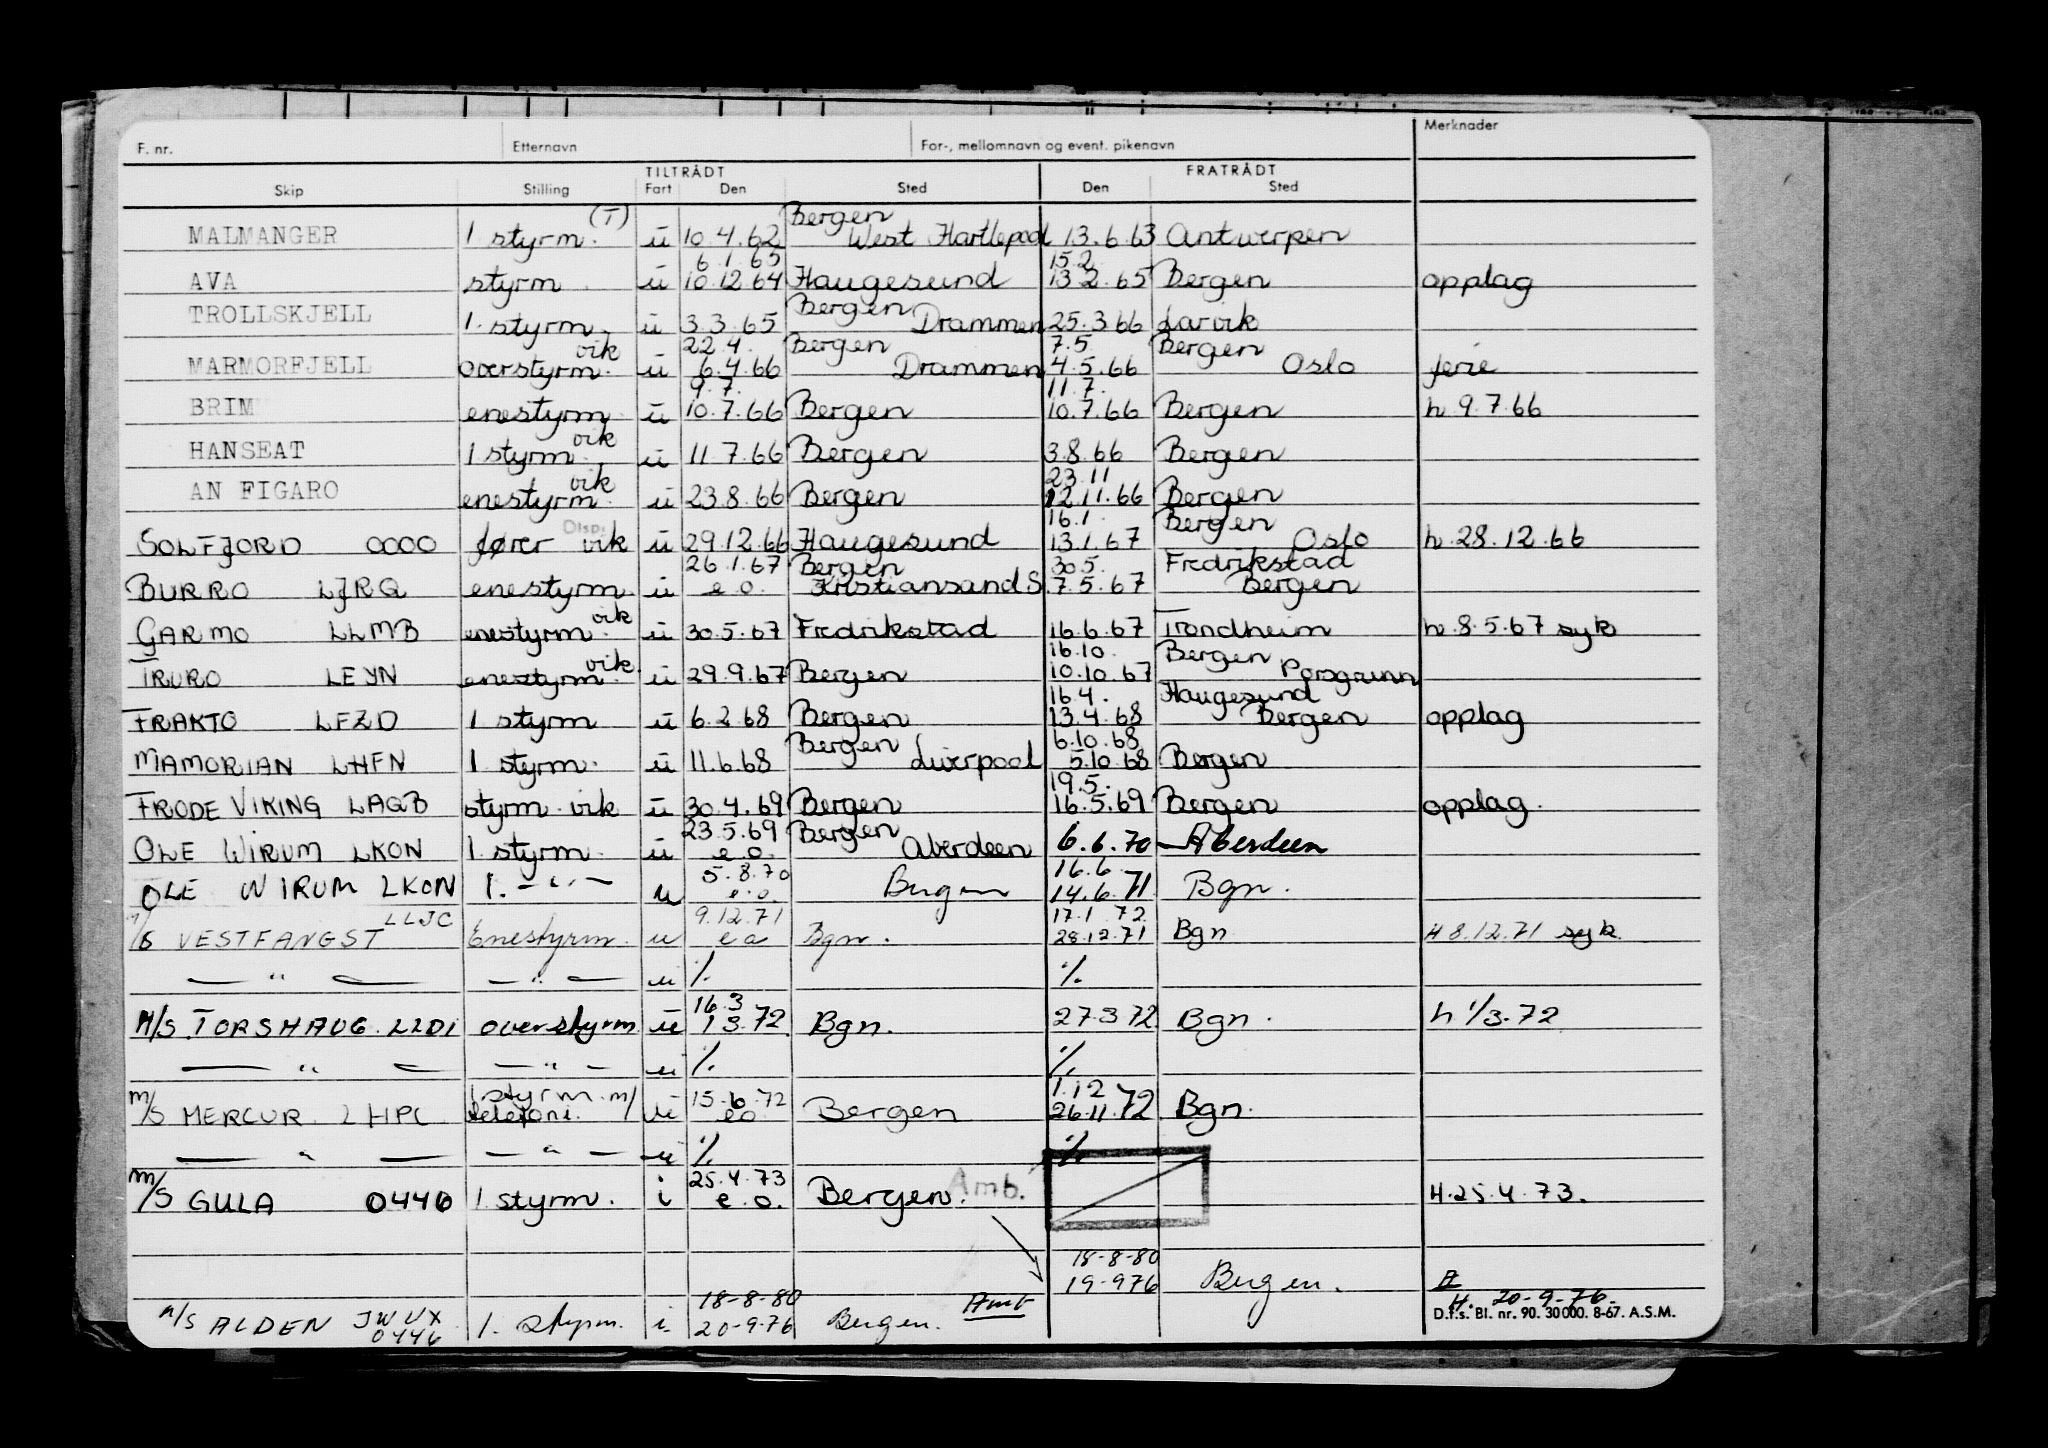 F. nr. Etternavn For-, mellomnavn og event. pikenavn Merknader
TILTRÅDT FRATRÅDT
Skip Stilling Fart Den Sted Den Sted
(T) Bergen
MALMANGER 1 styrm. ü 10.4.62 West Hartlepool 13.6.63 Antwerpen
6.1.65 15.2
AVA styrm ü 10.12.64 Haugesund 13.2.65 Bergen opplag
Bergen
TROLLSKJELL 1. styrm. ü 3.3.65 Drammen 25.3.66 Larvik
vik 22.4. Bergen 7.5 Bergen
MARMORFJELL overstyrm. ü 6.4.66 Drammen 4.5.66 Oslo ferie
9.7. 11.7.
BRIM enestyrm ü 10.7.66 Bergen 10.7.66 Bergen h 9.7.66
vik
HANSEAT 1 styrm. ü 11.7.66 Bergen 3.8.66 Bergen
vik 23.11
AN FIGARO enestyrm. ü 23.8.66 Bergen 12.11.66 Bergen
Disp. 16.1. Bergen
SOLFJORD 0000 fører vik ü 29.12.66 Haugesund 13.1.67 Oslo h.28.12.66
26.1.67 Bergen 30.5. Fredrikstad
BURRO LJRQ enestyrm. ü e o. Kristiansand S. 7.5.67 Bergen
vik
GARMO LLMB enestyrm. ü 30.5.67 Fredrikstad 16.6.67 Trondheim h.8.5.67 syk
vik. 16.10. Bergen
TRURO LEYN enestyrm. ü 29.9.67 Bergen 10.10.67 Porsgrunn
16.4. Haugesund
FRAKTO LFZD 1 styrm ü 6.2.68 Bergen 13.4.68 Bergen opplag
Bergen 6.10.68
MAMORIAN LHFN 1 styrm. ü 11.6.68 Liverpool 5.10.68 Bergen
19.5.
FRODE VIKING LAQB styrm. vik ü 30.4.69 Bergen 16.5.69 Bergen opplag.
23.5.69 Bergen
OLE WIRUM LKON 1 styrm. ü e o. Aberdeen 6.6.70 Aberdeen
5.8.70 16.6.
OLE WIRUM LKON 1. — " — u e.o. Bergen 14.6.71 Bgn.
LLJC 9.12.71 17.1.72
M/S VESTFANGST Enestyrm. u e o Bgn. 28.12.71 Bgn H 8.12.71 syk.
— " — — " — u ./. ./.
16.3
M/S. TORSHAUG. LLDI overstyrm ü 1.3.72. Bgn. 27.3.72 Bgn. h 1/3.72
— " — — " — u ./. ./.
1 styrm. m/ 15.6.72 1.12
M/S MERCUR. LHPC telefoni. ü eo. Bergen 26.11.72 Bgn.
— " — — " — u ./. ./.
25.4.73
M/S GULA 0446 1. styrm. i e. o. Bergen. Amb. H.25.4.73.
18-8-80
19-976 Bergen.
18-8-80 Amb H. 20-9-76.
M/S ALDEN JWUX 0446 1. styrm. i. 20-9-76 Bergen. D.f.s. Bl. nr. 90. 30 000. 8-67. A.S.M.